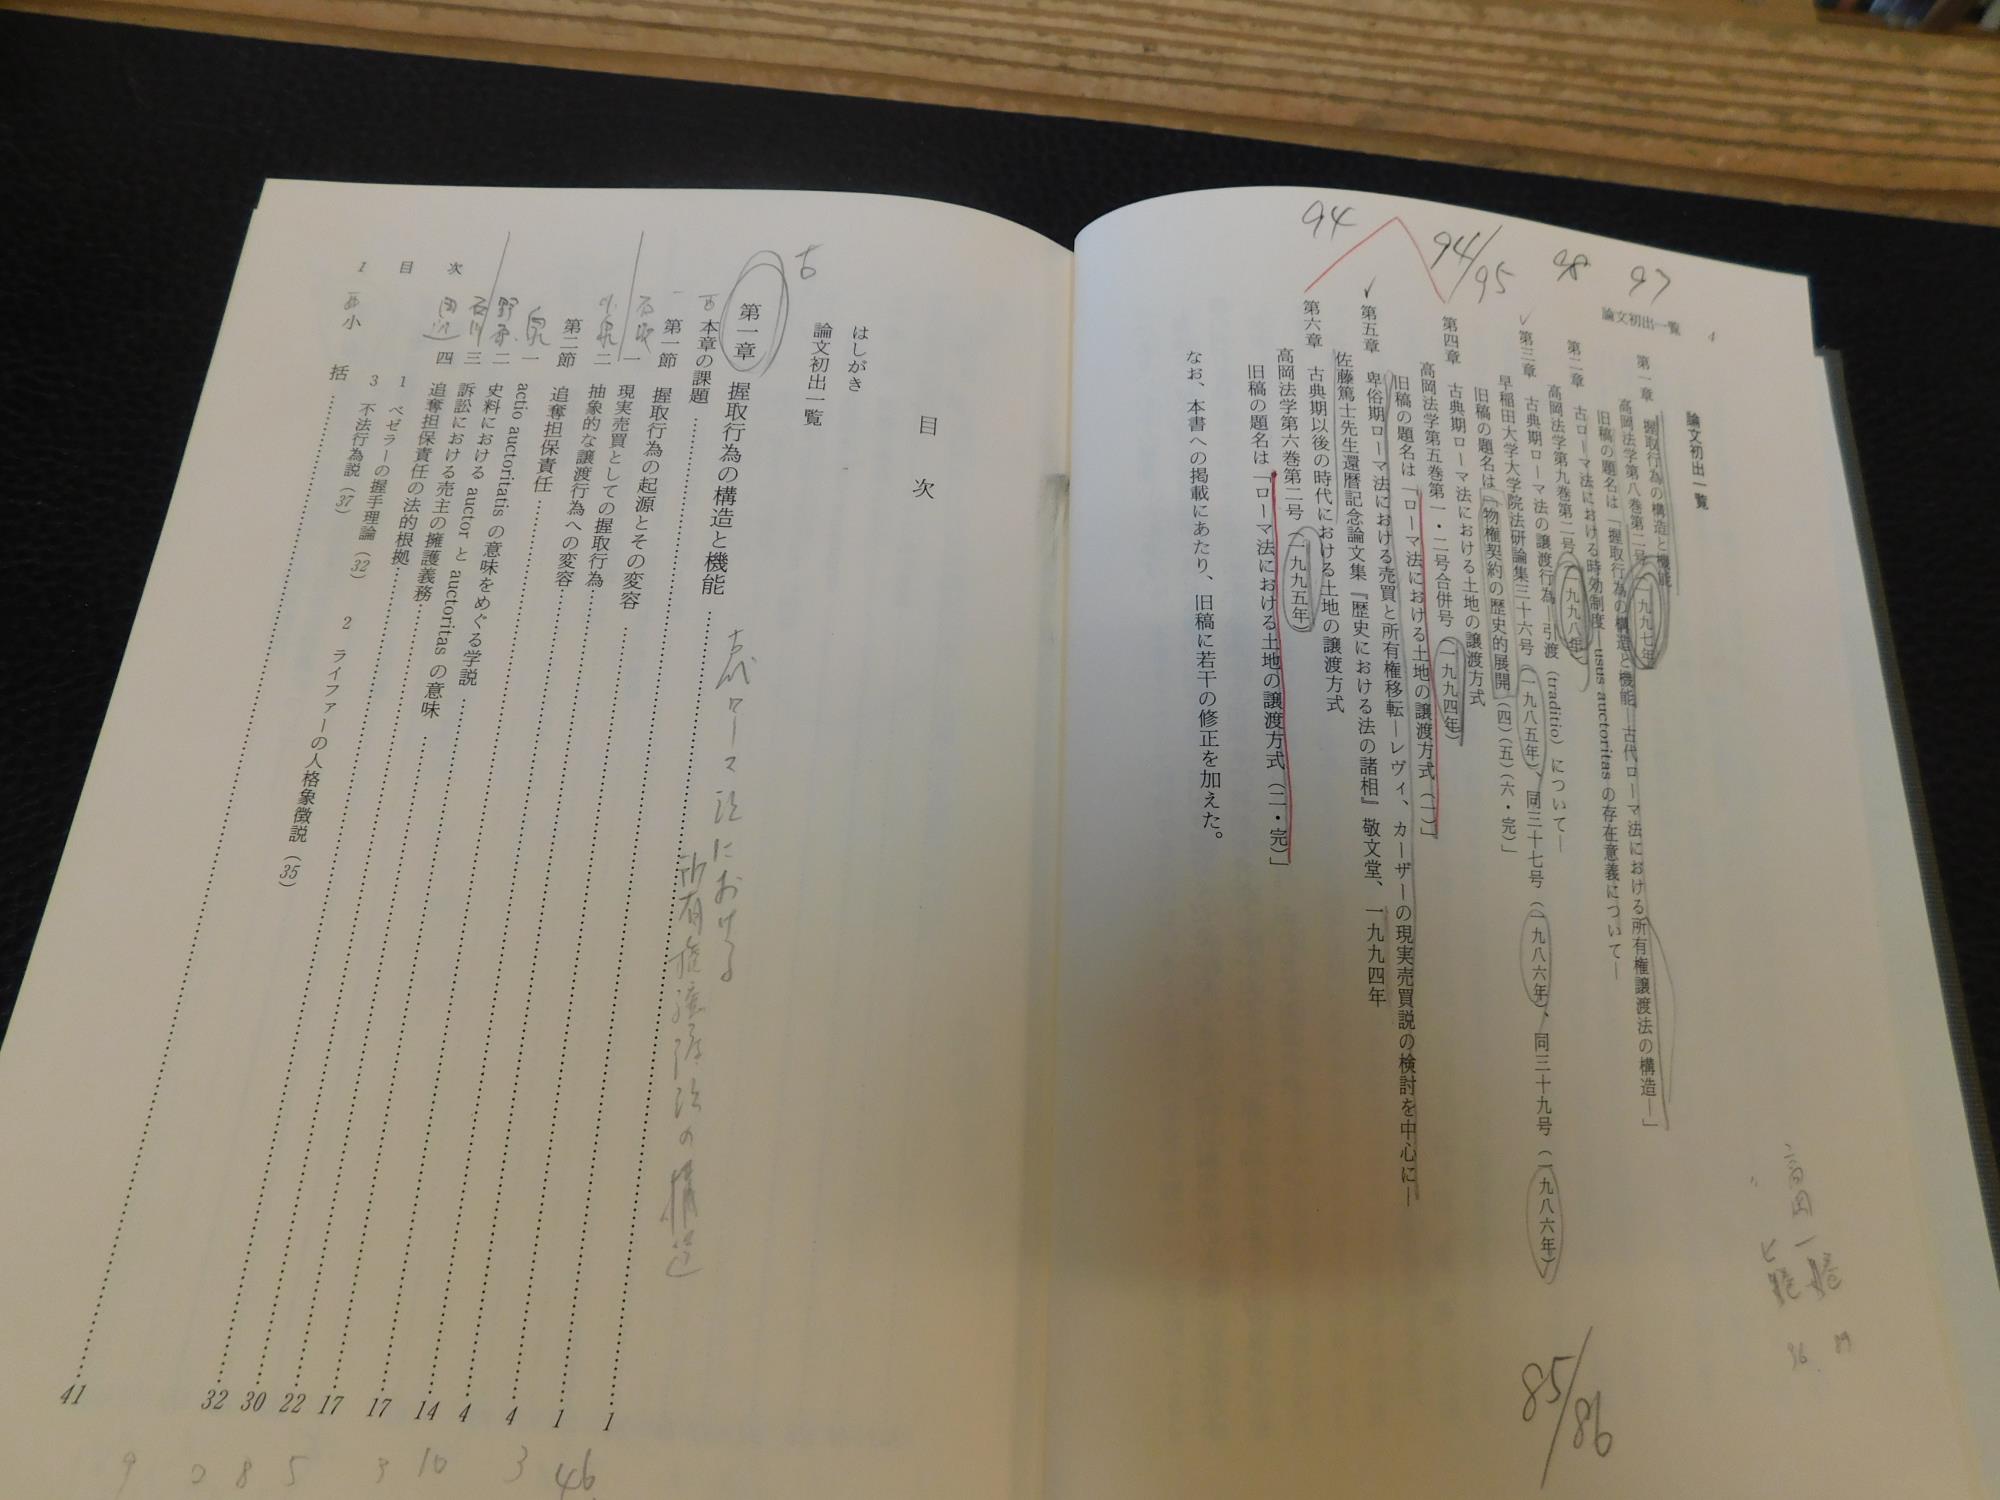 4
論文初出一覧
論文初出一覧
第一章　握取行為の構造と機能
高岡法学第八巻第二号（一九九七年）
旧稿の題名は「握取行為の構造と機能―古代ローマ法における所有権譲渡法の構造―」
第二章　古ローマ法における時効制度―usus auctoritas の存在意義について―
高岡法学第九巻第二号（一九九八年）
第三章　古典期ローマ法の譲渡行為―引渡（traditio）について―
早稲田大学大学院法研論集三十六号（一九八五年）、同三十七号（一九八六年）、同三十九号（一九八六年）
旧稿の題名は「物権契約の歴史的展開（四）（五）（六・完）」
第四章　古典期ローマ法における土地の譲渡方式
高岡法学第五巻第一・二号合併号（一九九四年）
旧稿の題名は「ローマ法における土地の譲渡方式（一）」
第五章　卑俗期ローマ法における売買と所有権移転―レヴィ、カーザーの現実売買説の検討を中心に―
佐藤篤士先生還暦記念論文集『歴史における法の諸相』敬文堂、一九九四年
第六章　古典期以後の時代における土地の譲渡方式
高岡法学第六巻第二号（一九九五年）
旧稿の題名は「ローマ法における土地の譲渡方式（二・完）」
なお、本書への掲載にあたり、旧稿に若干の修正を加えた。
97
98
94/95
94
85/86
高岡
目次
はしがき
論文初出一覧
古
第一章　握取行為の構造と機能……1
古代ローマ法における
所有権譲渡法の構造
一　本章の課題……1
第一節　握取行為の起源とその変容……4
一　現実売買としての握取行為……4
二　抽象的な譲渡行為への変容……14
第二節　追奪担保責任……17
一　actio auctoritatis の意味をめぐる学説……17
二　史料における auctor と auctoritas の意味……22
三　訴訟における売主の擁護義務……30
四　追奪担保責任の法的根拠……32
1　ベゼラーの握手理論（32）　2　ライファーの人格象徴説（35）
3　不法行為説（37）
小括……41
目次
1
46
3
10
3
5
8
2
9